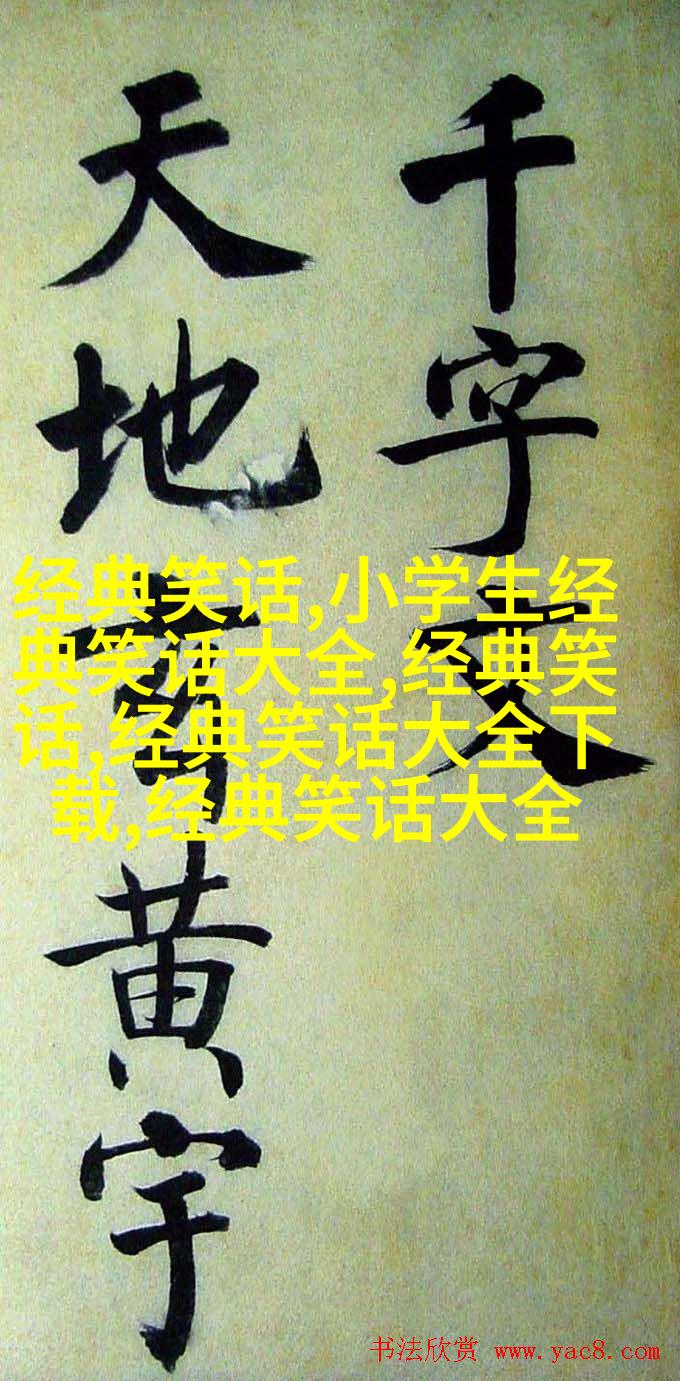 千字文
天地玄黄宇
经典笑话,小学生经
典笑话大全,经典笑
话,经典笑话大全下
载,经典笑话大全
书法欣赏 www.yac8.com